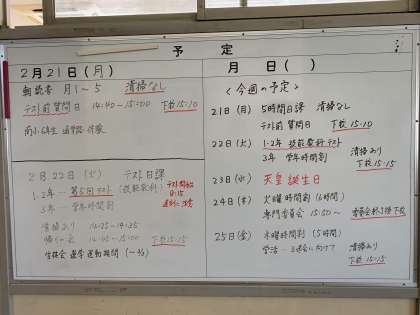 予定
2月21日(月)
朝読書 月1～5 清掃なし
テスト前質問日 14:40～15:00 下校15:10
南小6年生
2月22日(火) テスト日課
1・2年… 第5回テスト (技能教科)
テスト開始
3年… 学年時間割
清掃あり 14:25～14:35
帰りの会
下校15:15
生徒会 選挙運動期間
月 日( )
<今週の予定>
21日(月) 5時間日課 清掃なし
テスト前質問日 下校15:10
22日(火) 1・2年 技能教科テスト
3年 学年時間割 清掃あり
下校15:15
23日(水) 天皇誕生日
24日(木) 火曜時間割(6時間)
専門委員会 15:50～ 委員会終了後下校
25日(金) 木曜時間割(5時間)
清掃あり
下校15:15